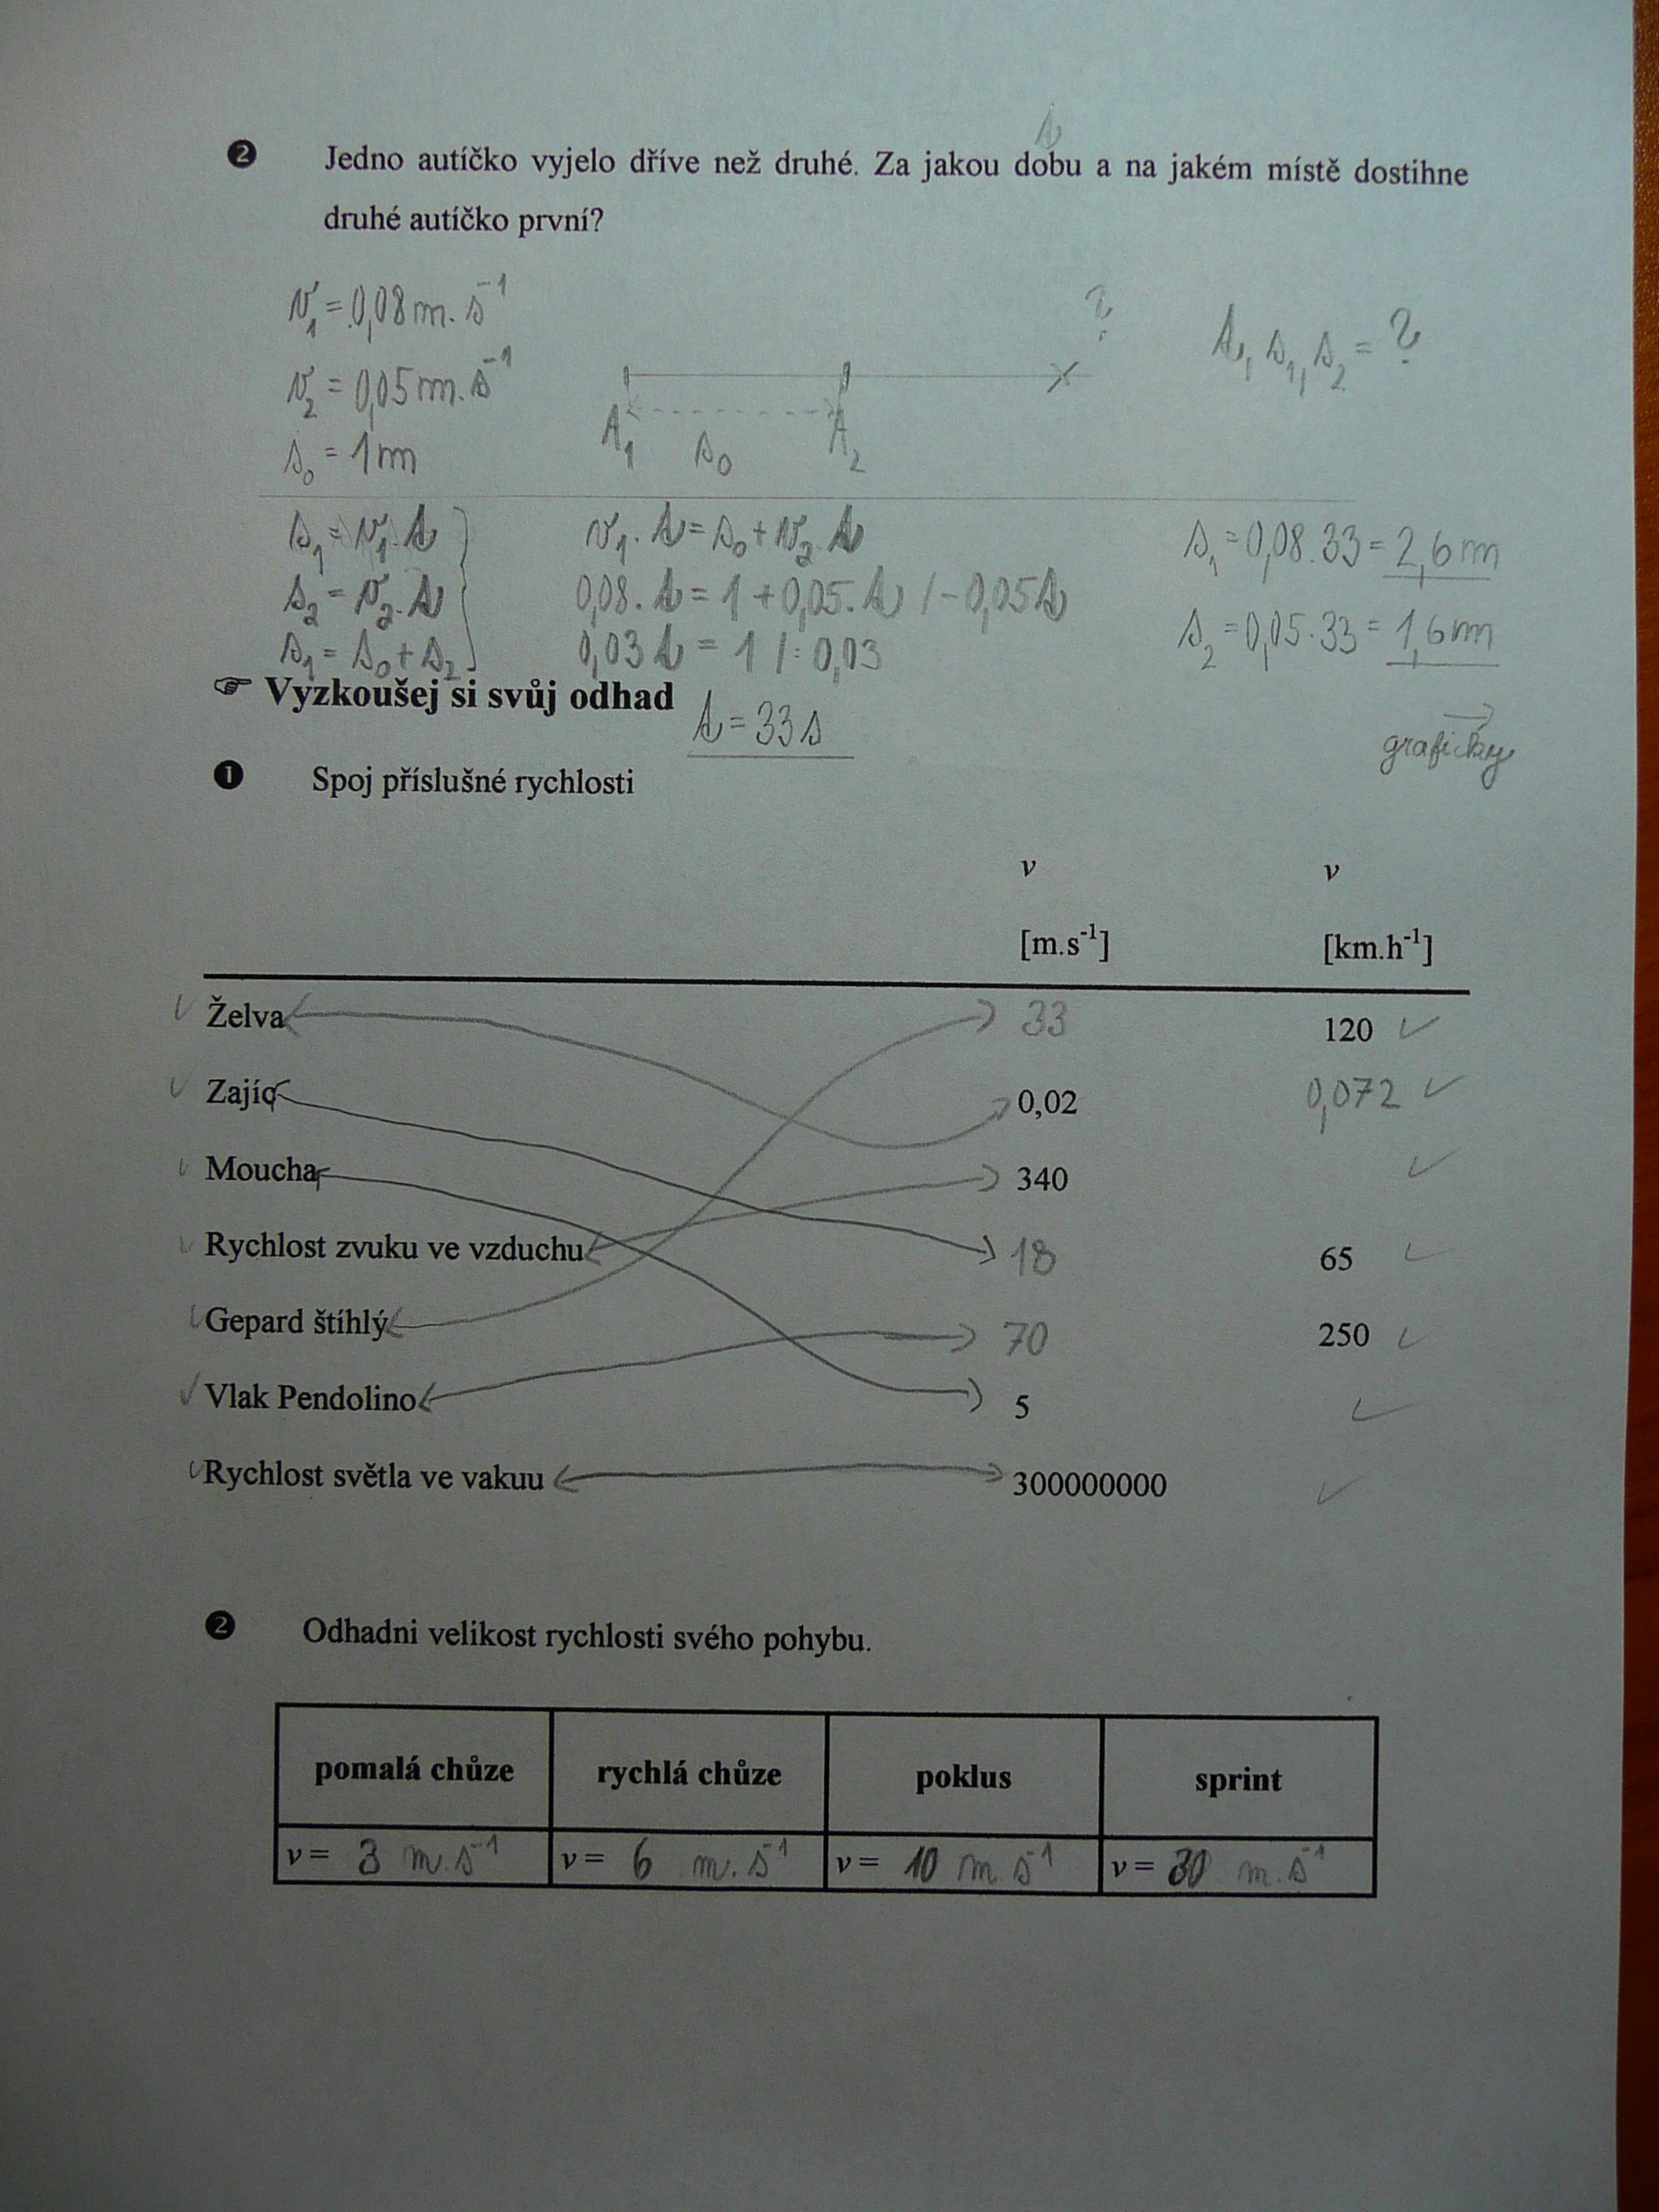 t
❷ Jedno autíčko vyjelo dříve než druhé. Za jakou dobu a na jakém místě dostihne
druhé autíčko první?
v₁ = 0,08 m.s⁻¹
?
t, s₁, s₂ = ?
v₂ = 0,05 m.s⁻¹
A₁ s₀ A₂
s₀ = 1m
s₁ = v₁.t
v₁.t = s₀ + v₂.t
s₁ = 0,08.33 = 2,6 m
s₂ = v₂.t
0,08.t = 1 + 0,05.t / - 0,05t
s₂ = 0,05.33 = 1,6 m
s₁ = s₀ + s₂
0,03t = 1 /: 0,03
☞ Vyzkoušej si svůj odhad
t = 33 s
graficky
❶ Spoj příslušné rychlosti
v v
[m.s⁻¹] [km.h⁻¹]
✓ Želva 33 120 ✓
✓ Zajíc 0,02 0,072 ✓
✓ Moucha 340 ✓
✓ Rychlost zvuku ve vzduchu 18 65 ✓
✓ Gepard štíhlý 70 250 ✓
✓ Vlak Pendolino 5 ✓
✓ Rychlost světla ve vakuu 300000000 ✓
❷ Odhadni velikost rychlosti svého pohybu.
pomalá chůze rychlá chůze poklus sprint
v = 3 m.s⁻¹ v = 6 m.s⁻¹ v = 10 m.s⁻¹ v = 30 m.s⁻¹